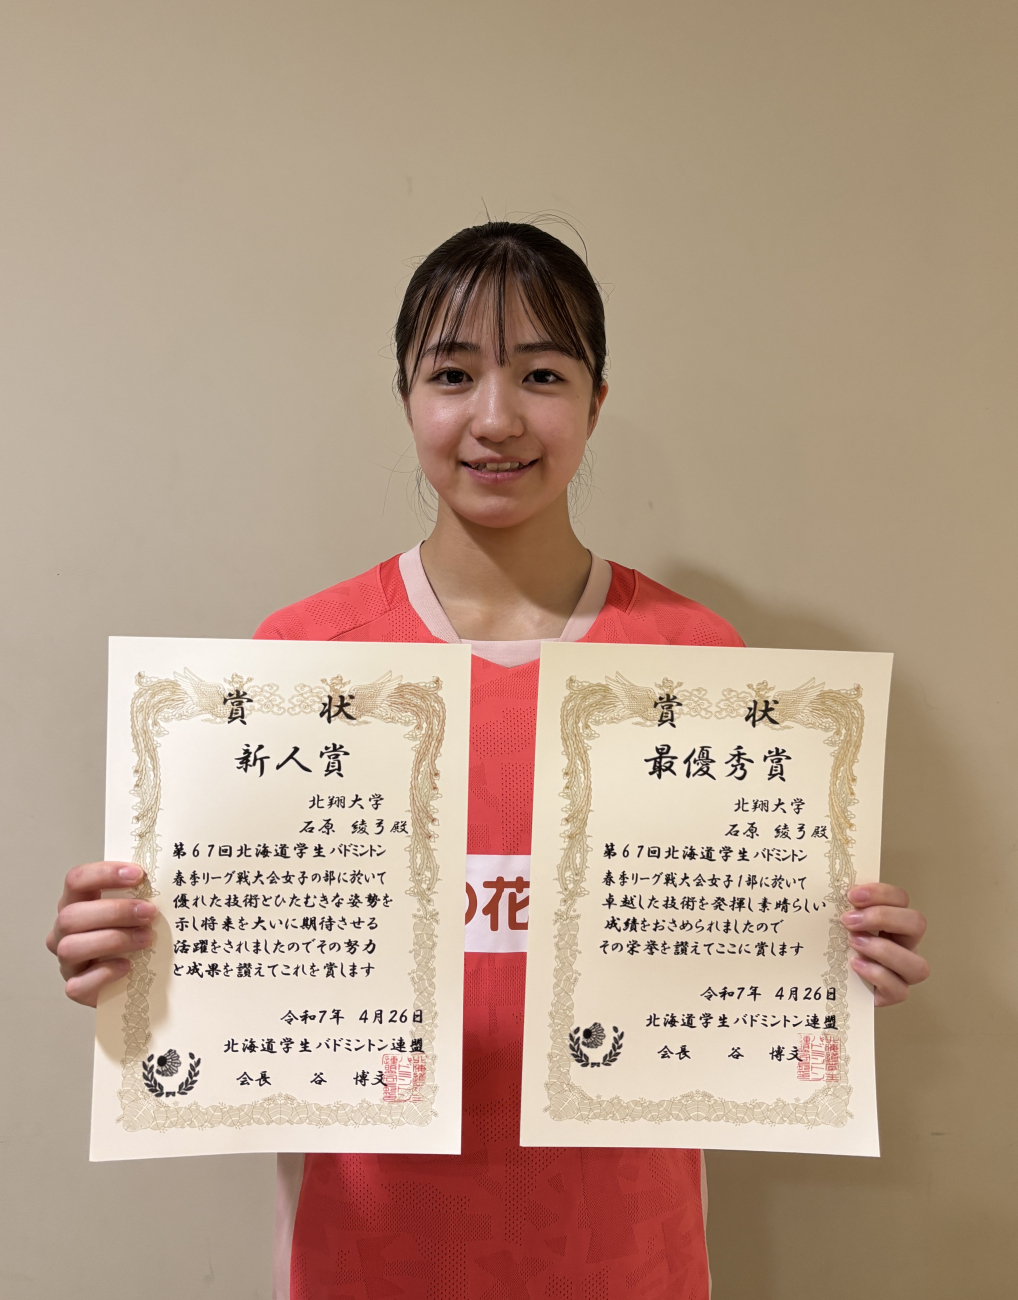 賞 状
新人賞
北翔大学
石原 綾弓殿
第67回北海道学生バドミントン
春季リーグ戦大会女子の部に於いて
優れた技術とひたむきな姿勢を
示し将来を大いに期待させる
活躍をされましたのでその努力
と成果を讃えてこれを賞します
令和7年 4月26日
北海道学生バドミントン連盟
会長 谷 博文
賞 状
最優秀賞
北翔大学
石原 綾弓殿
第67回北海道学生バドミントン
春季リーグ戦大会女子1部に於いて
卓越した技術を発揮し素晴らしい
成績をおさめられましたので
その栄誉を讃えてここに賞します
令和7年 4月26日
北海道学生バドミントン連盟
会長 谷 博文
の花